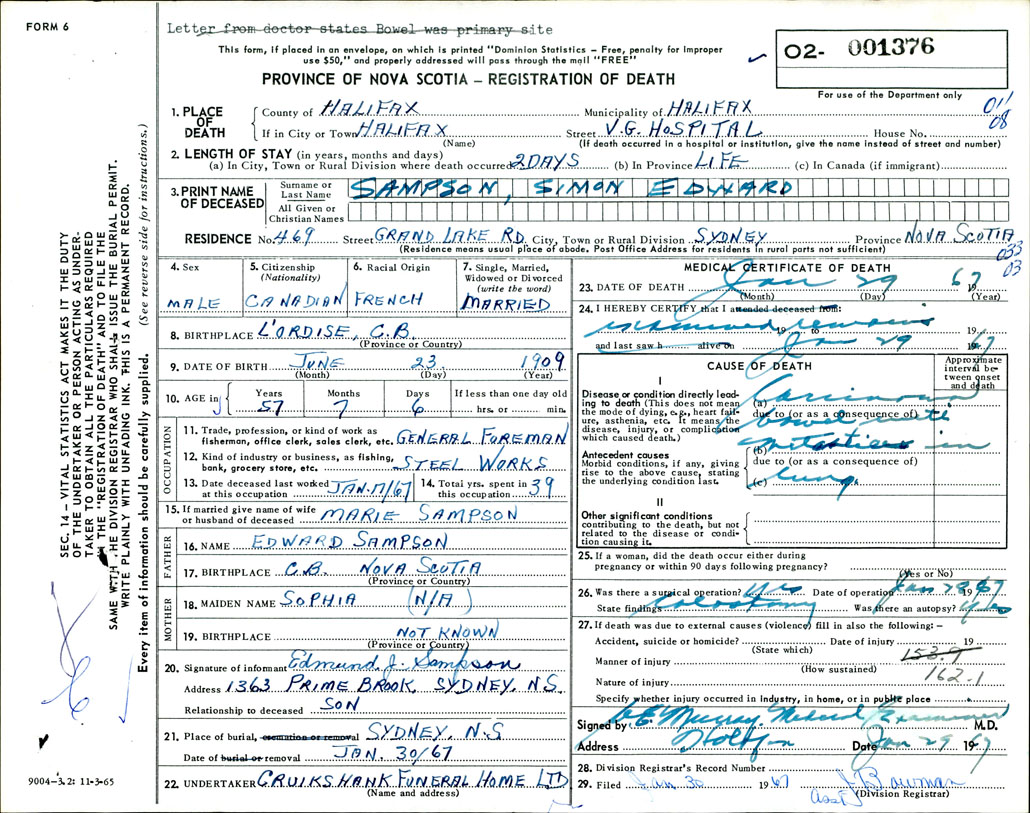 FORM 6
Letter from doctor states Bowel was primary site
This form, if placed in an envelope, on which is printed "Dominion Statistics – Free, penalty for improper
use $50," and properly addressed will pass through the mail "FREE"
PROVINCE OF NOVA SCOTIA – REGISTRATION OF DEATH
02- 001376
For use of the Department only
011
08
1. PLACE OF DEATH
County of HALIFAX Municipality of HALIFAX
If in City or Town HALIFAX Street V.G. HOSPITAL House No.
(Name) (If death occurred in a hospital or institution, give the name instead of street and number)
2. LENGTH OF STAY (in years, months and days)
(a) In City, Town or Rural Division where death occurred 2 DAYS (b) In Province LIFE (c) In Canada (if immigrant)
3. PRINT NAME OF DECEASED
Surname or Last Name SAMPSON, SIMON EDWARD
All Given or Christian Names
RESIDENCE No. 469 Street GRAND LAKE RD. City, Town or Rural Division SYDNEY Province NOVA SCOTIA
(Residence means usual place of abode. Post Office Address for residents in rural parts not sufficient)
033
03
4. Sex MALE
5. Citizenship (Nationality) CANADIAN
6. Racial Origin FRENCH
7. Single, Married, Widowed or Divorced (write the word) MARRIED
8. BIRTHPLACE L'ORDISE, C.B.
(Province or Country)
9. DATE OF BIRTH JUNE 23 1909
(Month) (Day) (Year)
10. AGE in Years 57 Months 7 Days 6 If less than one day old hrs. or min.
OCCUPATION
11. Trade, profession, or kind of work as fisherman, office clerk, sales clerk, etc. GENERAL FOREMAN
12. Kind of industry or business, as fishing, bank, grocery store, etc. STEEL WORKS
13. Date deceased last worked at this occupation JAN. 17/67
14. Total yrs. spent in this occupation 39
15. If married give name of wife or husband of deceased MARIE SAMPSON
FATHER
16. NAME EDWARD SAMPSON
17. BIRTHPLACE C.B. NOVA SCOTIA
(Province or Country)
MOTHER
18. MAIDEN NAME SOPHIA (N/A)
19. BIRTHPLACE NOT KNOWN
(Province or Country)
20. Signature of informant Edmund J. Sampson
Address 1363 PRIME BROOK, SYDNEY, N.S.
Relationship to deceased SON
21. Place of burial, cremation or removal SYDNEY, N.S
Date of burial or removal JAN. 30/67
22. UNDERTAKER CRUIKSHANK FUNERAL HOME LTD
(Name and address)
MEDICAL CERTIFICATE OF DEATH
23. DATE OF DEATH Jan 29 1967
(Month) (Day) (Year)
24. I HEREBY CERTIFY that I attended deceased from:
examined remains 19 to 19
and last saw h alive on Jan 29 1967
CAUSE OF DEATH
Approximate interval between onset and death
I
Disease or condition directly leading to death (This does not mean the mode of dying, e.g., heart failure, asthenia, etc. It means the disease, injury, or complication which caused death.)
(a) Carcinoma
due to (or as a consequence of)
bowel with
Antecedent causes
Morbid conditions, if any, giving rise to the above cause, stating the underlying condition last.
(b) metastices in
due to (or as a consequence of)
(c) lung
II
Other significant conditions contributing to the death, but not related to the disease or condition causing it.
25. If a woman, did the death occur either during pregnancy or within 90 days following pregnancy?
(Yes or No)
26. Was there a surgical operation? Yes Date of operation Jan 28 1967
State findings Colostomy Was there an autopsy? Yes
27. If death was due to external causes (violence) fill in also the following: –
Accident, suicide or homicide? Date of injury 19
(State which)
153.9
Manner of injury
(How sustained)
162-1
Nature of injury
Specify whether injury occurred in Industry, in home, or in public place
Signed by Murray Medical Examiner M.D.
Address Halifax Date Jan 29 1967
28. Division Registrar's Record Number
29. Filed Jan 30 1967 J. Bowman
Asst. (Division Registrar)
SEC. 14 – VITAL STATISTICS ACT MAKES IT THE DUTY
OF THE UNDERTAKER OR PERSON ACTING AS UNDER-
TAKER TO OBTAIN ALL THE PARTICULARS REQUIRED
IN THE "REGISTRATION OF DEATH" AND TO FILE THE
SAME WITH THE DIVISION REGISTRAR WHO SHALL ISSUE THE BURIAL PERMIT.
WRITE PLAINLY WITH UNFADING INK. THIS IS A PERMANENT RECORD.
Every item of information should be carefully supplied. (See reverse side for instructions.)
9004–3.2: 11-3-65